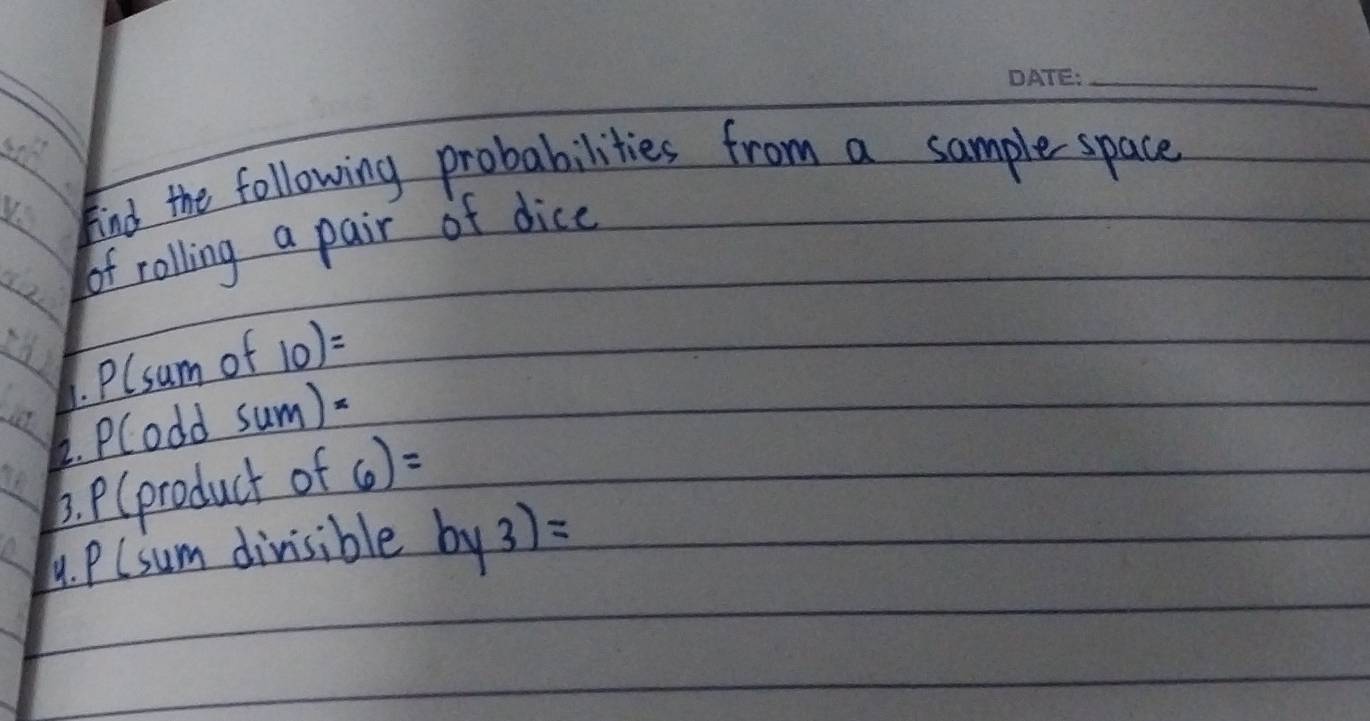 DATE:
Find the following probabilities from a sample space
of rolling a pair of dice
1. P(sum of 10)=
2. P(odd sum)=
3. P(product of 6)=
4. P(sum divisible by 3)=